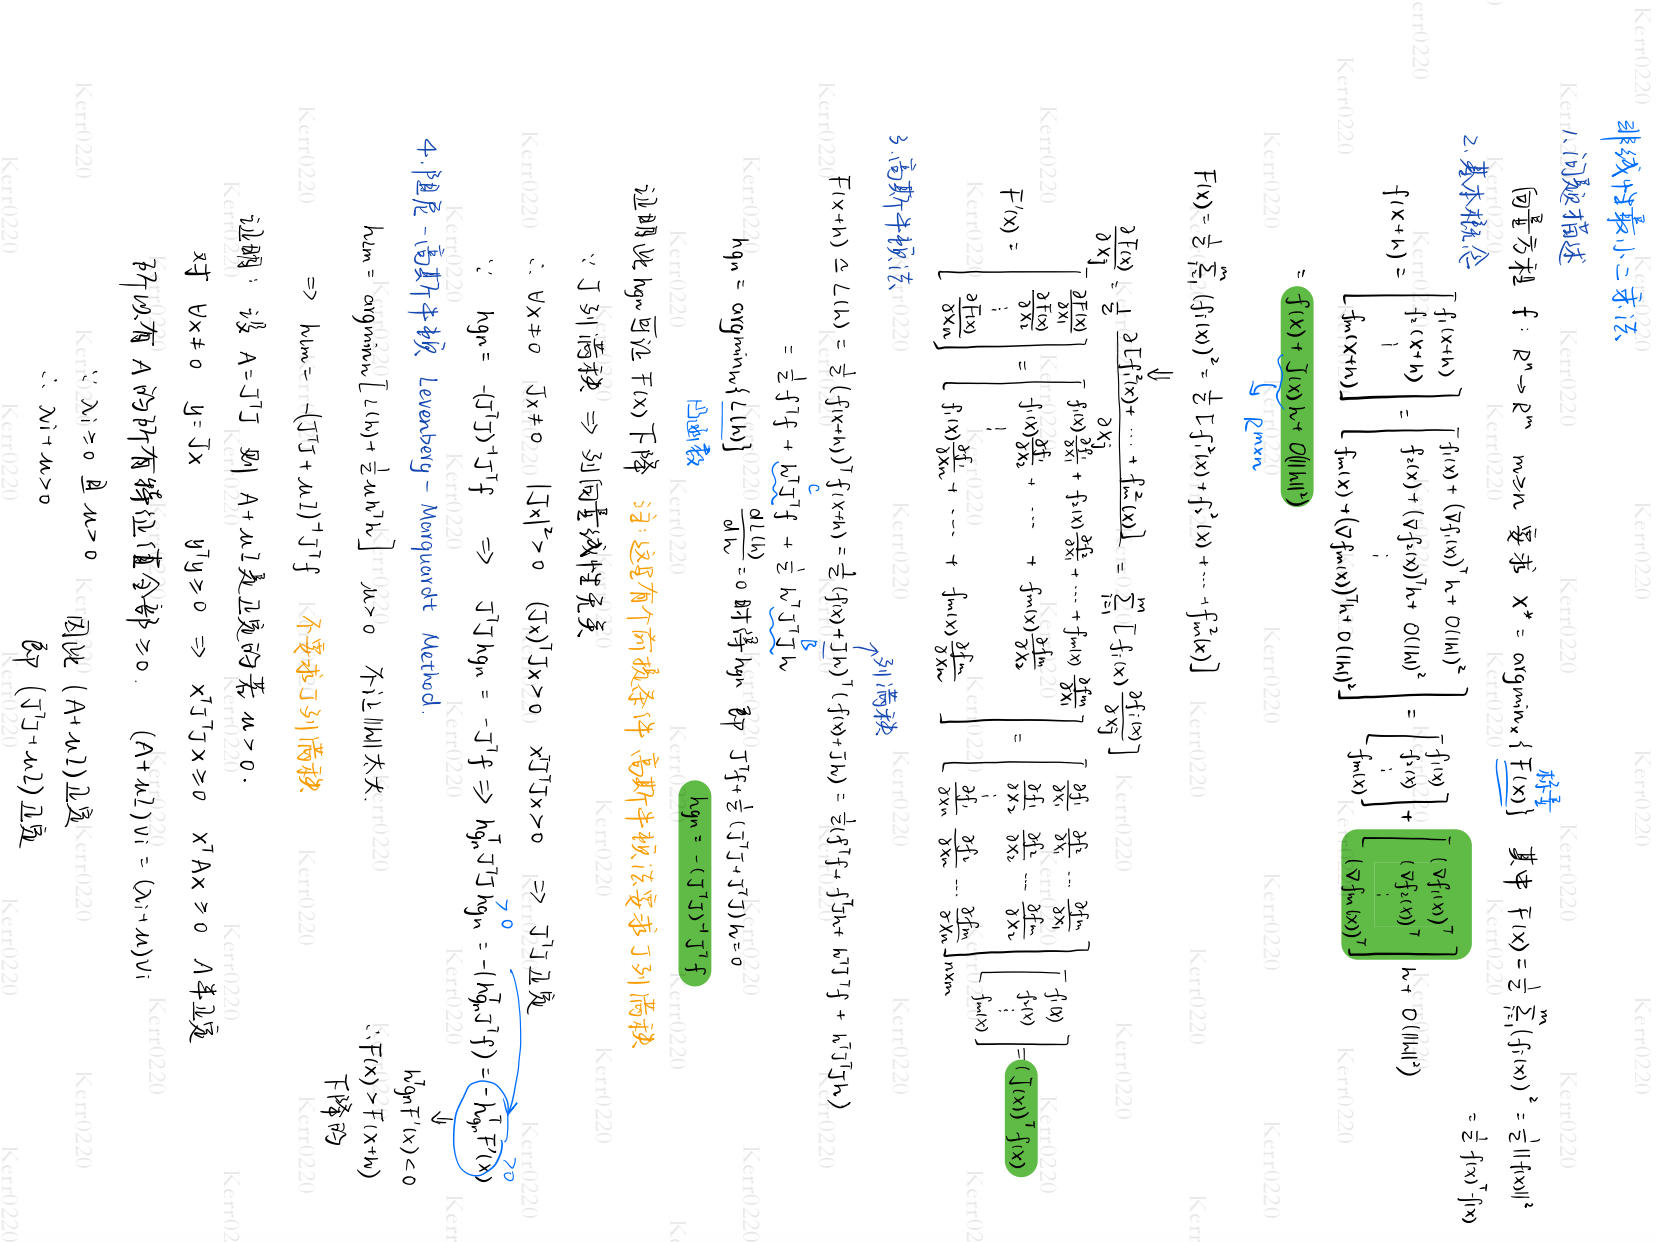 非线性最小二乘法
1.问题描述
向量方程 f: Rⁿ → Rᵐ m≥n 要求 x* = argminₓ{F(x)} 其中 F(x) = ½ Σᵢ₌₁ᵐ (fᵢ(x))² = ½||f(x)||²
标量
= ½ f(x)ᵀf(x)
2.基本概念
f(x+h) = [f₁(x+h) f₂(x+h) ⋮ fm(x+h)] = [f₁(x)+(∇f₁(x))ᵀh+O(||h||)² f₂(x)+(∇f₂(x))ᵀh+O(||h||)² ⋮ fm(x)+(∇fm(x))ᵀh+O(||h||)²] = [f₁(x) f₂(x) ⋮ fm(x)] + [(∇f₁(x))ᵀ (∇f₂(x))ᵀ ⋮ (∇fm(x))ᵀ] h + O(||h||²)
= f(x) + J(x)h + O(||h||²)
↳ Rᵐˣⁿ
F(x) = ½ Σᵢ₌₁ᵐ (fᵢ(x))² = ½ [f₁²(x)+f₂²(x)+⋯+fm²(x)]
⇓
∂F(x)/∂xj = ½ ∂[f₁²(x)+⋯+fm²(x)]/∂xj = Σᵢ₌₁ᵐ [fᵢ(x) ∂fᵢ(x)/∂xj]
F′(x) = [∂F(x)/∂x₁ ∂F(x)/∂x₂ ⋮ ∂F(x)/∂xn] = [f₁(x)∂f₁/∂x₁ + f₂(x)∂f₂/∂x₁ + ⋯ + fm(x)∂fm/∂x₁ f₁(x)∂f₁/∂x₂ + ⋯ + fm(x)∂fm/∂x₂ ⋮ f₁(x)∂f₁/∂xn + ⋯ + fm(x)∂fm/∂xn] = [∂f₁/∂x₁ ∂f₂/∂x₁ ⋯ ∂fm/∂x₁ ∂f₁/∂x₂ ∂f₂/∂x₂ ⋯ ∂fm/∂x₂ ⋮ ∂f₁/∂xn ∂f₂/∂xn ⋯ ∂fm/∂xn]n×m [f₁(x) f₂(x) ⋮ fm(x)] = (J(x))ᵀf(x)
3.高斯牛顿法
列满秩
F(x+h) ≃ L(h) = ½(f(x+h))ᵀf(x+h) = ½(f(x)+Jh)ᵀ(f(x)+Jh) = ½(fᵀf + fᵀJh + hᵀJᵀf + hᵀJᵀJh)
= ½fᵀf + hᵀJᵀf + ½hᵀJᵀJh
C B
hgn = argminₕ{L(h)} dL(h)/dh = 0 时得hgn 即 Jᵀf + ½(JᵀJ+JᵀJ)h = 0
凸函数
hgn = -(JᵀJ)⁻¹Jᵀf
证明此hgn可让F(x)下降 注:这里有个前提条件,高斯牛顿法要求J列满秩
∵ J列满秩 ⇒ 列向量线性无关
∴ ∀x≠0 Jx≠0 |Jx|²>0 (Jx)ᵀJx>0 xᵀJᵀJx>0 ⇒ JᵀJ正定
∵ hgn = -(JᵀJ)⁻¹Jᵀf ⇒ JᵀJhgn = -Jᵀf ⇒ hgnᵀJᵀJhgn = -(hgnᵀJᵀf) = -hgnᵀF′(x)
>0 >0
hgnᵀF′(x)<0
⇓
∴ F(x)>F(x+h)
下降的
4.阻尼-高斯牛顿 Levenberg-Marquardt Method.
hlm = argminₕ[L(h)+½uhᵀh] u>0 不让||h||太大.
⇒ hlm = -(JᵀJ+uI)⁻¹Jᵀf 不要求J列满秩
证明:设A=JᵀJ 则 A+uI是正定的若u>0.
对 ∀x≠0 y=Jx yᵀy≥0 ⇒ xᵀJᵀJx≥0 xᵀAx≥0 A半正定
所以有A的所有特征值全部≥0. (A+uI)vi = (λi+u)vi
∵ λi≥0 且 u>0 因此 (A+uI)正定
∴ λi+u>0 即 (JᵀJ+uI)正定
Kerr0220